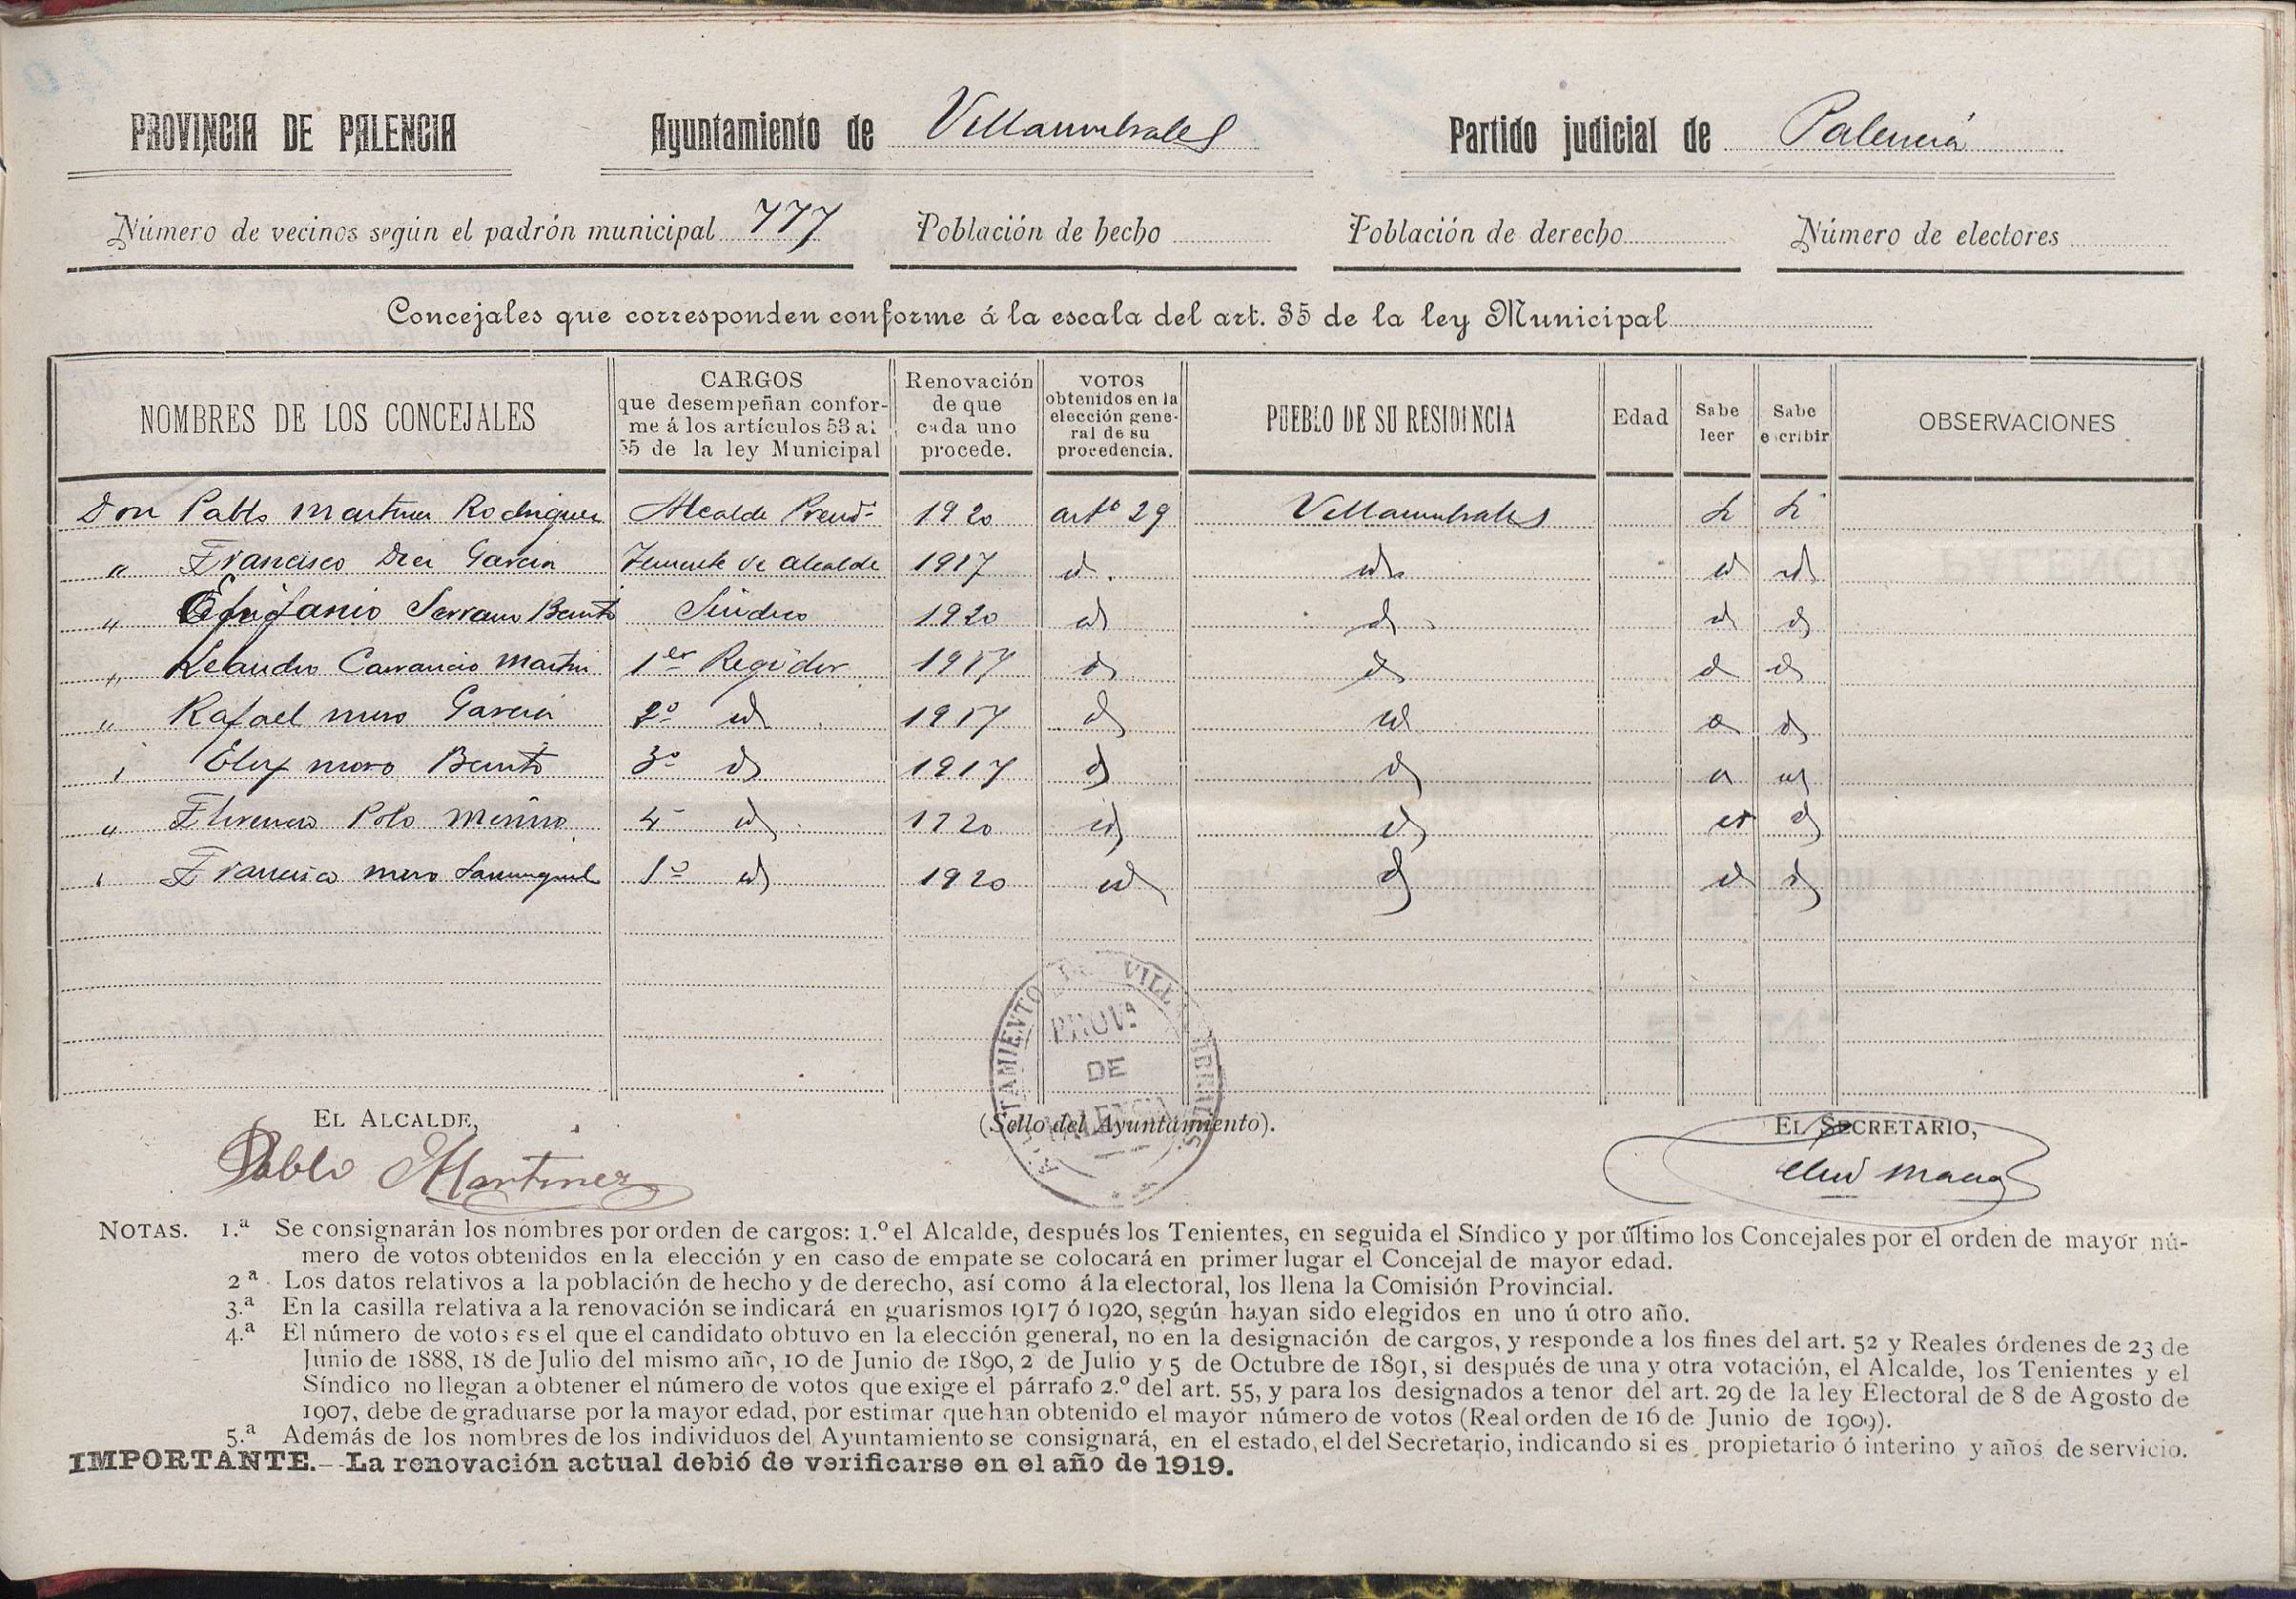 PROVINCIA DE PALENCIA Ayuntamiento de Villaumbrales Partido judicial de Palencia
Número de vecinos según el padrón municipal 777 Población de hecho Población de derecho Número de electores
Concejales que corresponden conforme á la escala del art. 35 de la ley Municipal
NOMBRES DE LOS CONCEJALES
CARGOS
que desempeñan confor-
me á los artículos 53 al
55 de la ley Municipal
Renovación
de que
cada uno
procede.
VOTOS
obtenidos en la
elección gene-
ral de su
procedencia.
PUEBLO DE SU RESIDENCIA
Edad
Sabe
leer
Sabe
escribir
OBSERVACIONES
Don Pablo Martinez Rodriguez Alcalde Presid.te 1920 artº 29 Villaumbrales
" Francisco Diez Garcia Teniente de Alcalde 1917 id. id. id id
" Epifanio Serrano Benito Sindico 1920 id id id id
" Leandro Carrancio Martin 1er Regidor 1917 id id id id
" Rafael Moro Garcia 2º id 1917 id id id id
" Eloy Moro Benito 3º id 1917 id id id id
" Florencio Polo Merino 4º id 1920 id id id id
" Francisco Moro Sanmiguel id 1920 id id id id
AYUNTAMIENTO DE VILLAUMBRALES
PROVª
DE
PALENCIA
EL ALCALDE, (Sello del Ayuntamiento). EL SECRETARIO,
Pablo Martinez
NOTAS. 1.ª Se consignarán los nombres por orden de cargos: 1.º el Alcalde, después los Tenientes, en seguida el Síndico y por último los Concejales por el orden de mayor nú-
mero de votos obtenidos en la elección y en caso de empate se colocará en primer lugar el Concejal de mayor edad.
2ª. Los datos relativos a la población de hecho y de derecho, así como á la electoral, los llena la Comisión Provincial.
3.ª En la casilla relativa a la renovación se indicará en guarismos 1917 ó 1920, según hayan sido elegidos en uno ú otro año.
4.ª El número de votos es el que el candidato obtuvo en la elección general, no en la designación de cargos, y responde a los fines del art. 52 y Reales órdenes de 23 de
Junio de 1888, 18 de Julio del mismo año, 10 de Junio de 1890, 2 de Julio y 5 de Octubre de 1891, si después de una y otra votación, el Alcalde, los Tenientes y el
Síndico no llegan a obtener el número de votos que exige el párrafo 2.º del art. 55, y para los designados a tenor del art. 29 de la ley Electoral de 8 de Agosto de
1907, debe de graduarse por la mayor edad, por estimar que han obtenido el mayor número de votos (Real orden de 16 de Junio de 1909).
5.ª Además de los nombres de los individuos del Ayuntamiento se consignará, en el estado, el del Secretario, indicando si es propietario ó interino y años de servicio.
IMPORTANTE.—La renovación actual debió de verificarse en el año de 1919.